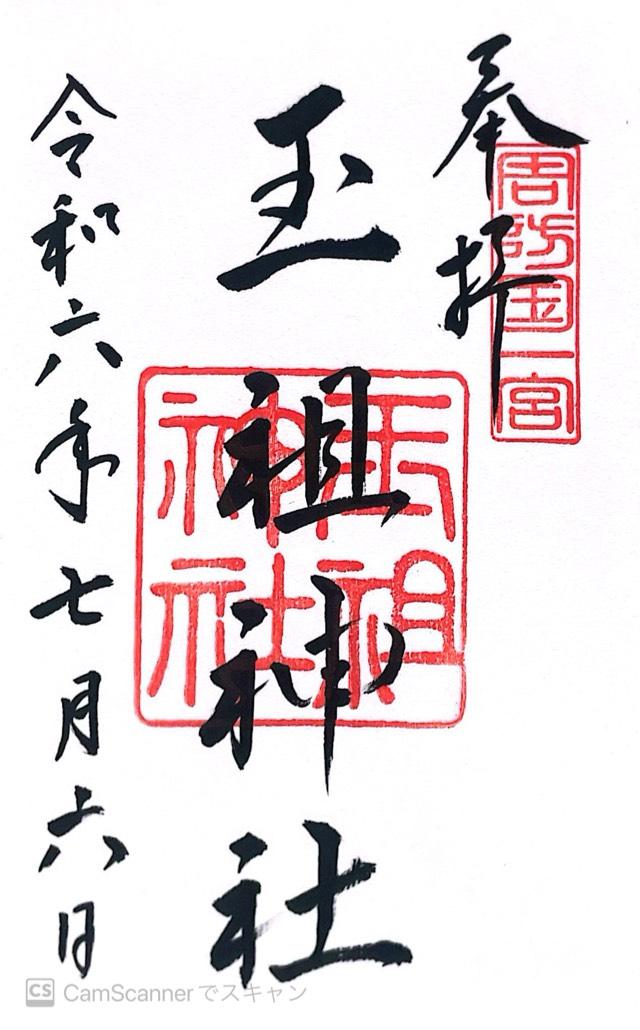 奉拝
周防国一宮
玉祖神社
玉祖
神社
令和六年七月六日
CS CamScannerでスキャン